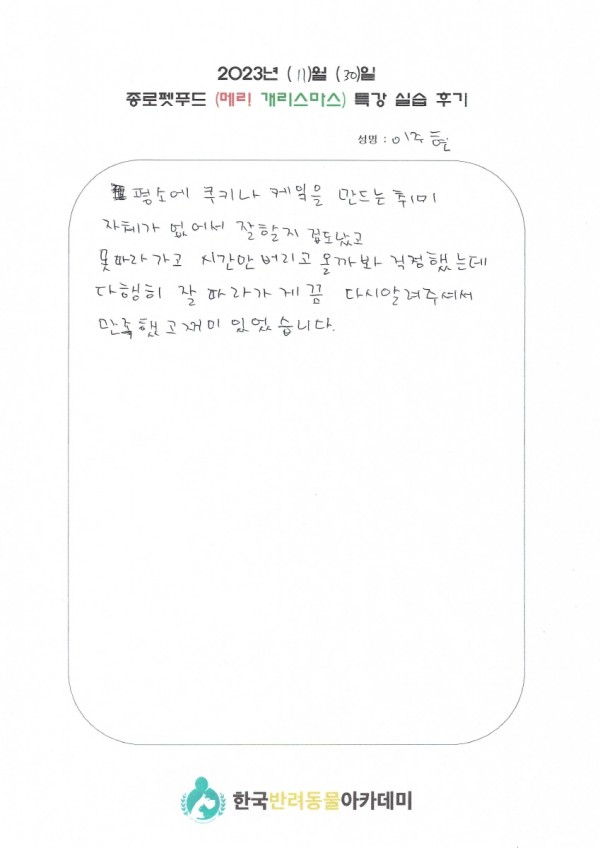 2023년 (11)월 (30)일
종로펫푸드 (메리 개리스마스) 특강 실습 후기
성명 : 이주현
평소에 쿠키나 케잌을 만드는 취미
자체가 없어서 잘할지 겁도났고
못따라가고 시간만 버리고 올까봐 걱정했는데
다행히 잘 따라가게끔 다시알려주셔서
만족했고 재미 있었습니다.
한국반려동물아카데미